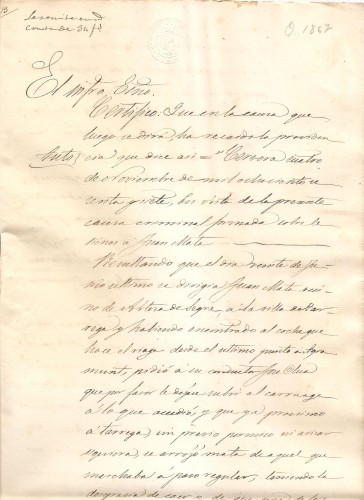 13
La remite en d
consta de 34 fs
O. 1867
El infro Esno.
Certifico: Que en la causa que
luego se dirá, ha recaido la providen
Auto
cia que dice asi = "Cervera cuatro
de Noviembre de mil ochocientos se
senta y siete, En vista de la presente
causa criminal formada sobre le
siones á Juan Mata
Resultando que el dia veinte de Ju
nio ultimo se dirigia Juan Mata veci
no de Artesa de Segre, á la villa de Tar
rega y habiendo encontrado al coche que
hace el viage desde el ultimo punto a Agra
munt, pidió á su conductor José Clua
que por favor le dejase subir al carruage
á lo que accedió; y que ya proximo
á Tarrega, sin previo permiso ni avisar
siquiera, se arrojó Mata de aquel que
marchaba á paso regular, teniendo la
desgracia de caer